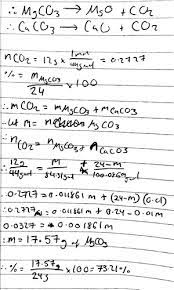 ∴ MgCO₃ → MgO + CO₂
∴ CaCO₃ → CaO + CO₂
nCO₂ = 12g × 1mol/44g = 0.2727
% = mMgCO₃/24 × 100
∴ mCO₂ = mMgCO₃ + mCaCO3
let m = MgCO3
∴ nCO₂ = nMgCO₃ + nCaCO3
∴ 12g/44g/mol = m/84.31g/mol + 24-m/100.086g/mol
0.2727 = 0.01186 m + (24-m) (0.01)
∴ 0.2727 = 0.01186 m + 0.24 - 0.01m
0.0327 = 0.00186 m
∴ m = 17.57g of MgCO₃
∴ % = 17.57g/24g × 100 = 73.21%